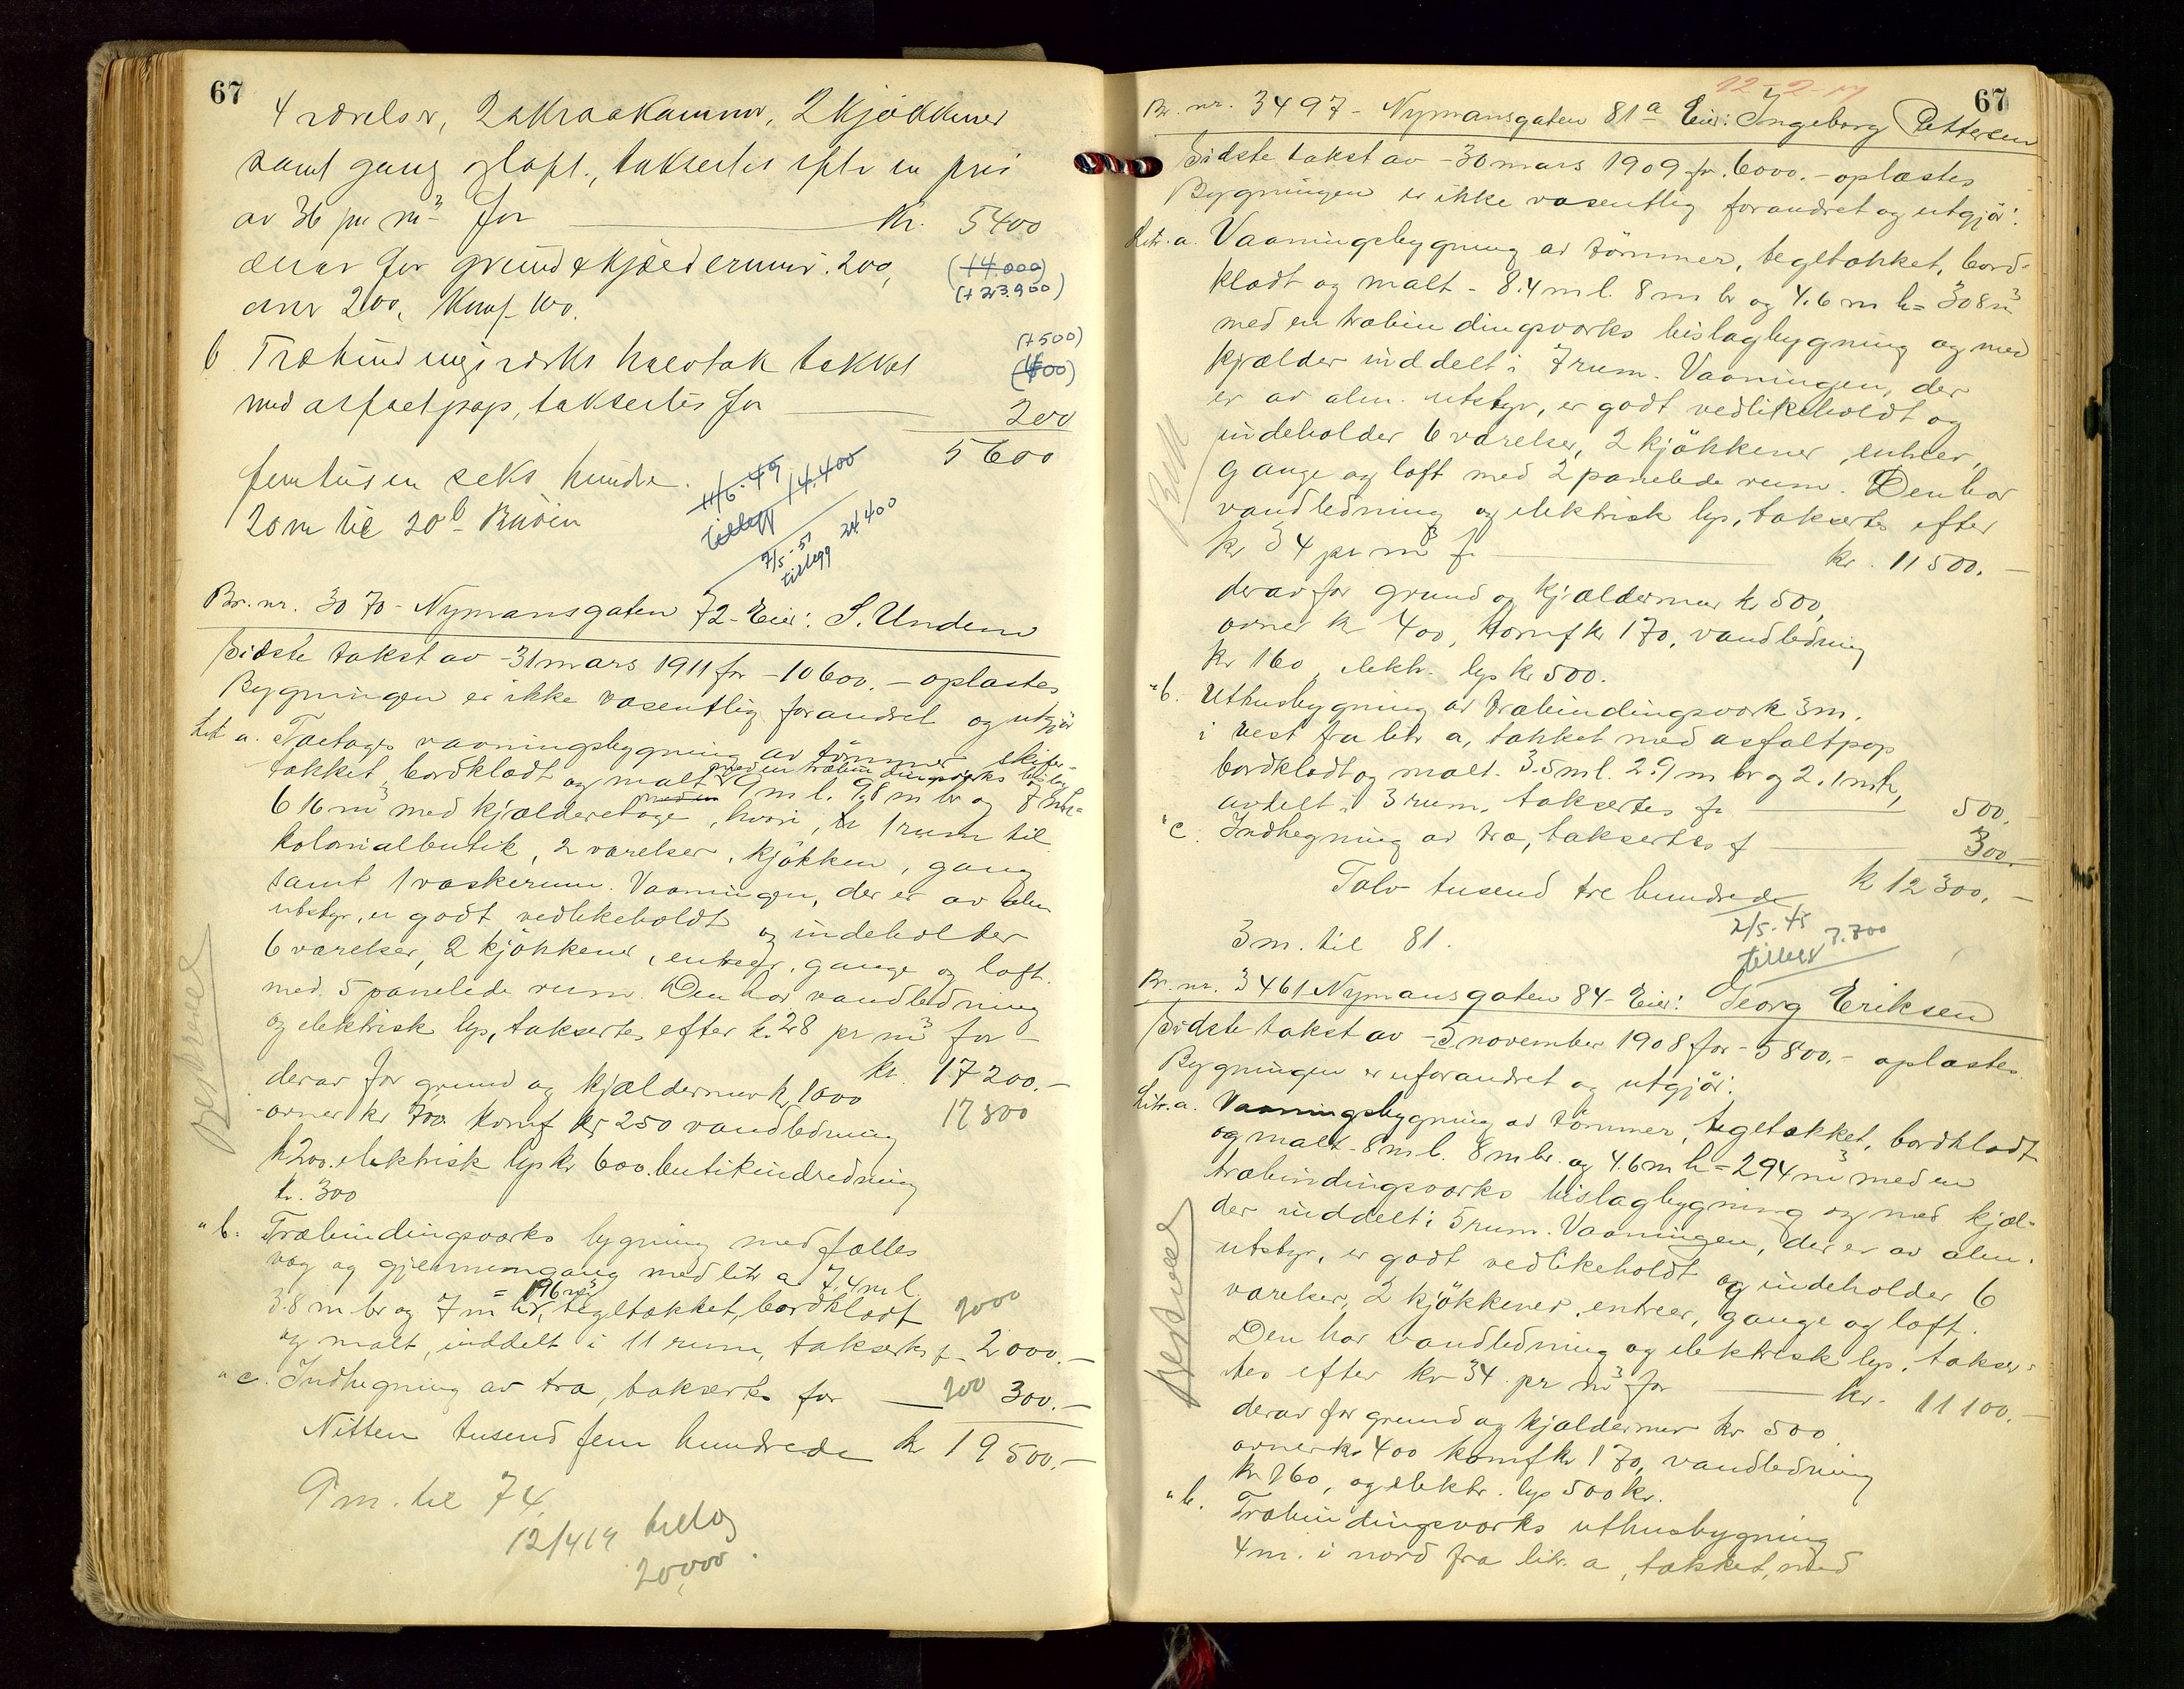 67
4 værelser, 2 skraakammer, 2 kjøkkener
samt gang og loft, taksertes efter en pris
av 36 pr m³ for kr. 5400
derav for grund & kjeldermur. 200, (14.000)
ovner 200, Komf. 100. (+ 23.900)
(+500)
b Træbindingsværks halvtak tækket (400)
med asfaltpap, taksertes for 200
5600
femtusen seks hundre.
20 m til 20b
11/6-49
tillegg 14.400
7/5-51
tillegg 24400
Br. nr. 3070 - Nymansgaten 72 - Eier: S. Undem
Sidste takst av - 31 mars 1911 for - 10600. - oplæstes
Bygningen er ikke væsentlig forandret og utgjör
Lit a. Toetages vaaningsbygning av tömmer skifer-
med en træbindingsværks bislag
tækket, bordklædt og malt - 9 m l. 9.8 m br og 7 m h =
616 m³ med kjælderetage, hvori, 1 rum til
kolonialbutik, 2 værelser, kjökken, gang
samt 1 vaskerum. Vaaningen, der er av alm
utstyr, er godt vedlikeholdt og indeholder
6 værelser, 2 kjökkener, entreer, gange og loft
med 5 panelede rum. Den har vandledning
og elektrisk lys, taksertes efter kr 28 pr m³ for -
kr. 17200. -
derav for grund og kjældermur kr 1000
17500
ovner kr 700. Komf kr 250 vandledning
kr 200. elektrisk lys kr 600. butikindredning
kr. 300
Bestrever
" b. Træbindingsværks bygning med fælles
væg og gjennemgang med litr a 7.4 m l.
= 196 m³
3.8 m br og 7 m h, tegltækket, bordklædt 2000
og malt, inddelt i 11 rum, taksertes f - 2000. -
" c. Indhegning av træ, taksertes for 200 300. -
Nitten tusend fem hundrede kr 19500. -
9 m. til 74.
12/4 19 tillæg
20,000.
12-2-17
67
Br. nr. 3497 - Nymansgaten 81a Eier: Ingeborg Pettersen
Sidste takst av - 30 mars 1909 for 6000. - oplæstes
Bygningen er ikke væsentlig forandret og utgjör:
Litr. a. Vaaningsbygning av tömmer, tegltækket, bord-
klædt og malt - 8.4 m l. 8 m br og 4.6 m h = 308 m³
med en træbindingsværks bislagbygning og med
kjælder inddelt i 7 rum. Vaaningen, der
er av alm. utstyr, er godt vedlikeholdt og
indeholder 6 værelser, 2 kjökkener, entreer,
gange og loft med 2 panelede rum. Den har
vandledning og elektrisk lys, taksertes efter
kr 34 pr m³ f kr. 11500. -
derav for grund og kjældermur kr 500,
ovner kr 400, Komf kr 170, vandledning
kr 160, elektr. lys kr 500.
" b. Uthusbygning av træbindingsværk 3 m.
i vest fra litr a, tækket med asfaltpap
bordklædt og malt. 3.5 m l. 2.9 m br og 2.1 m h,
avdelt i 3 rum, taksertes for 500. -
" c. Indhegning av træ, taksertes f 300. -
Tolv tusend tre hundrede kr 12300. -
2/5-45
tillegg 7.700
3 m. til 81.
Br. nr. 3461 Nymansgaten 84 - Eier: Georg Eriksen
Sidste takst av - 5 november 1908 for - 5800. - oplæstes
Bygningen er uforandret og utgjör:
Litr. a. Vaaningsbygning av tömmer, tegltækket, bordklædt
og malt - 8 m l. 8 m br. og 4.6 m h = 294 m³ med en
træbindingsværks bislagbygning og med kjæl-
der inddelt i 5 rum. Vaaningen, der er av alm.
utstyr, er godt vedlikeholdt og indeholder 6
værelser, 2 kjökkener, entreer, gange og loft.
Den har vandledning og elektrisk lys, takser-
tes efter kr 34 pr m³ for kr. 11100. -
derav for grund og kjældermur kr 500
ovner kr 400 komf kr 170, vandledning
kr 160, og elektr. lys 500 kr.
" b. Træbindingsværks uthusbygning
4 m. i nord fra litr. a, tækket, med